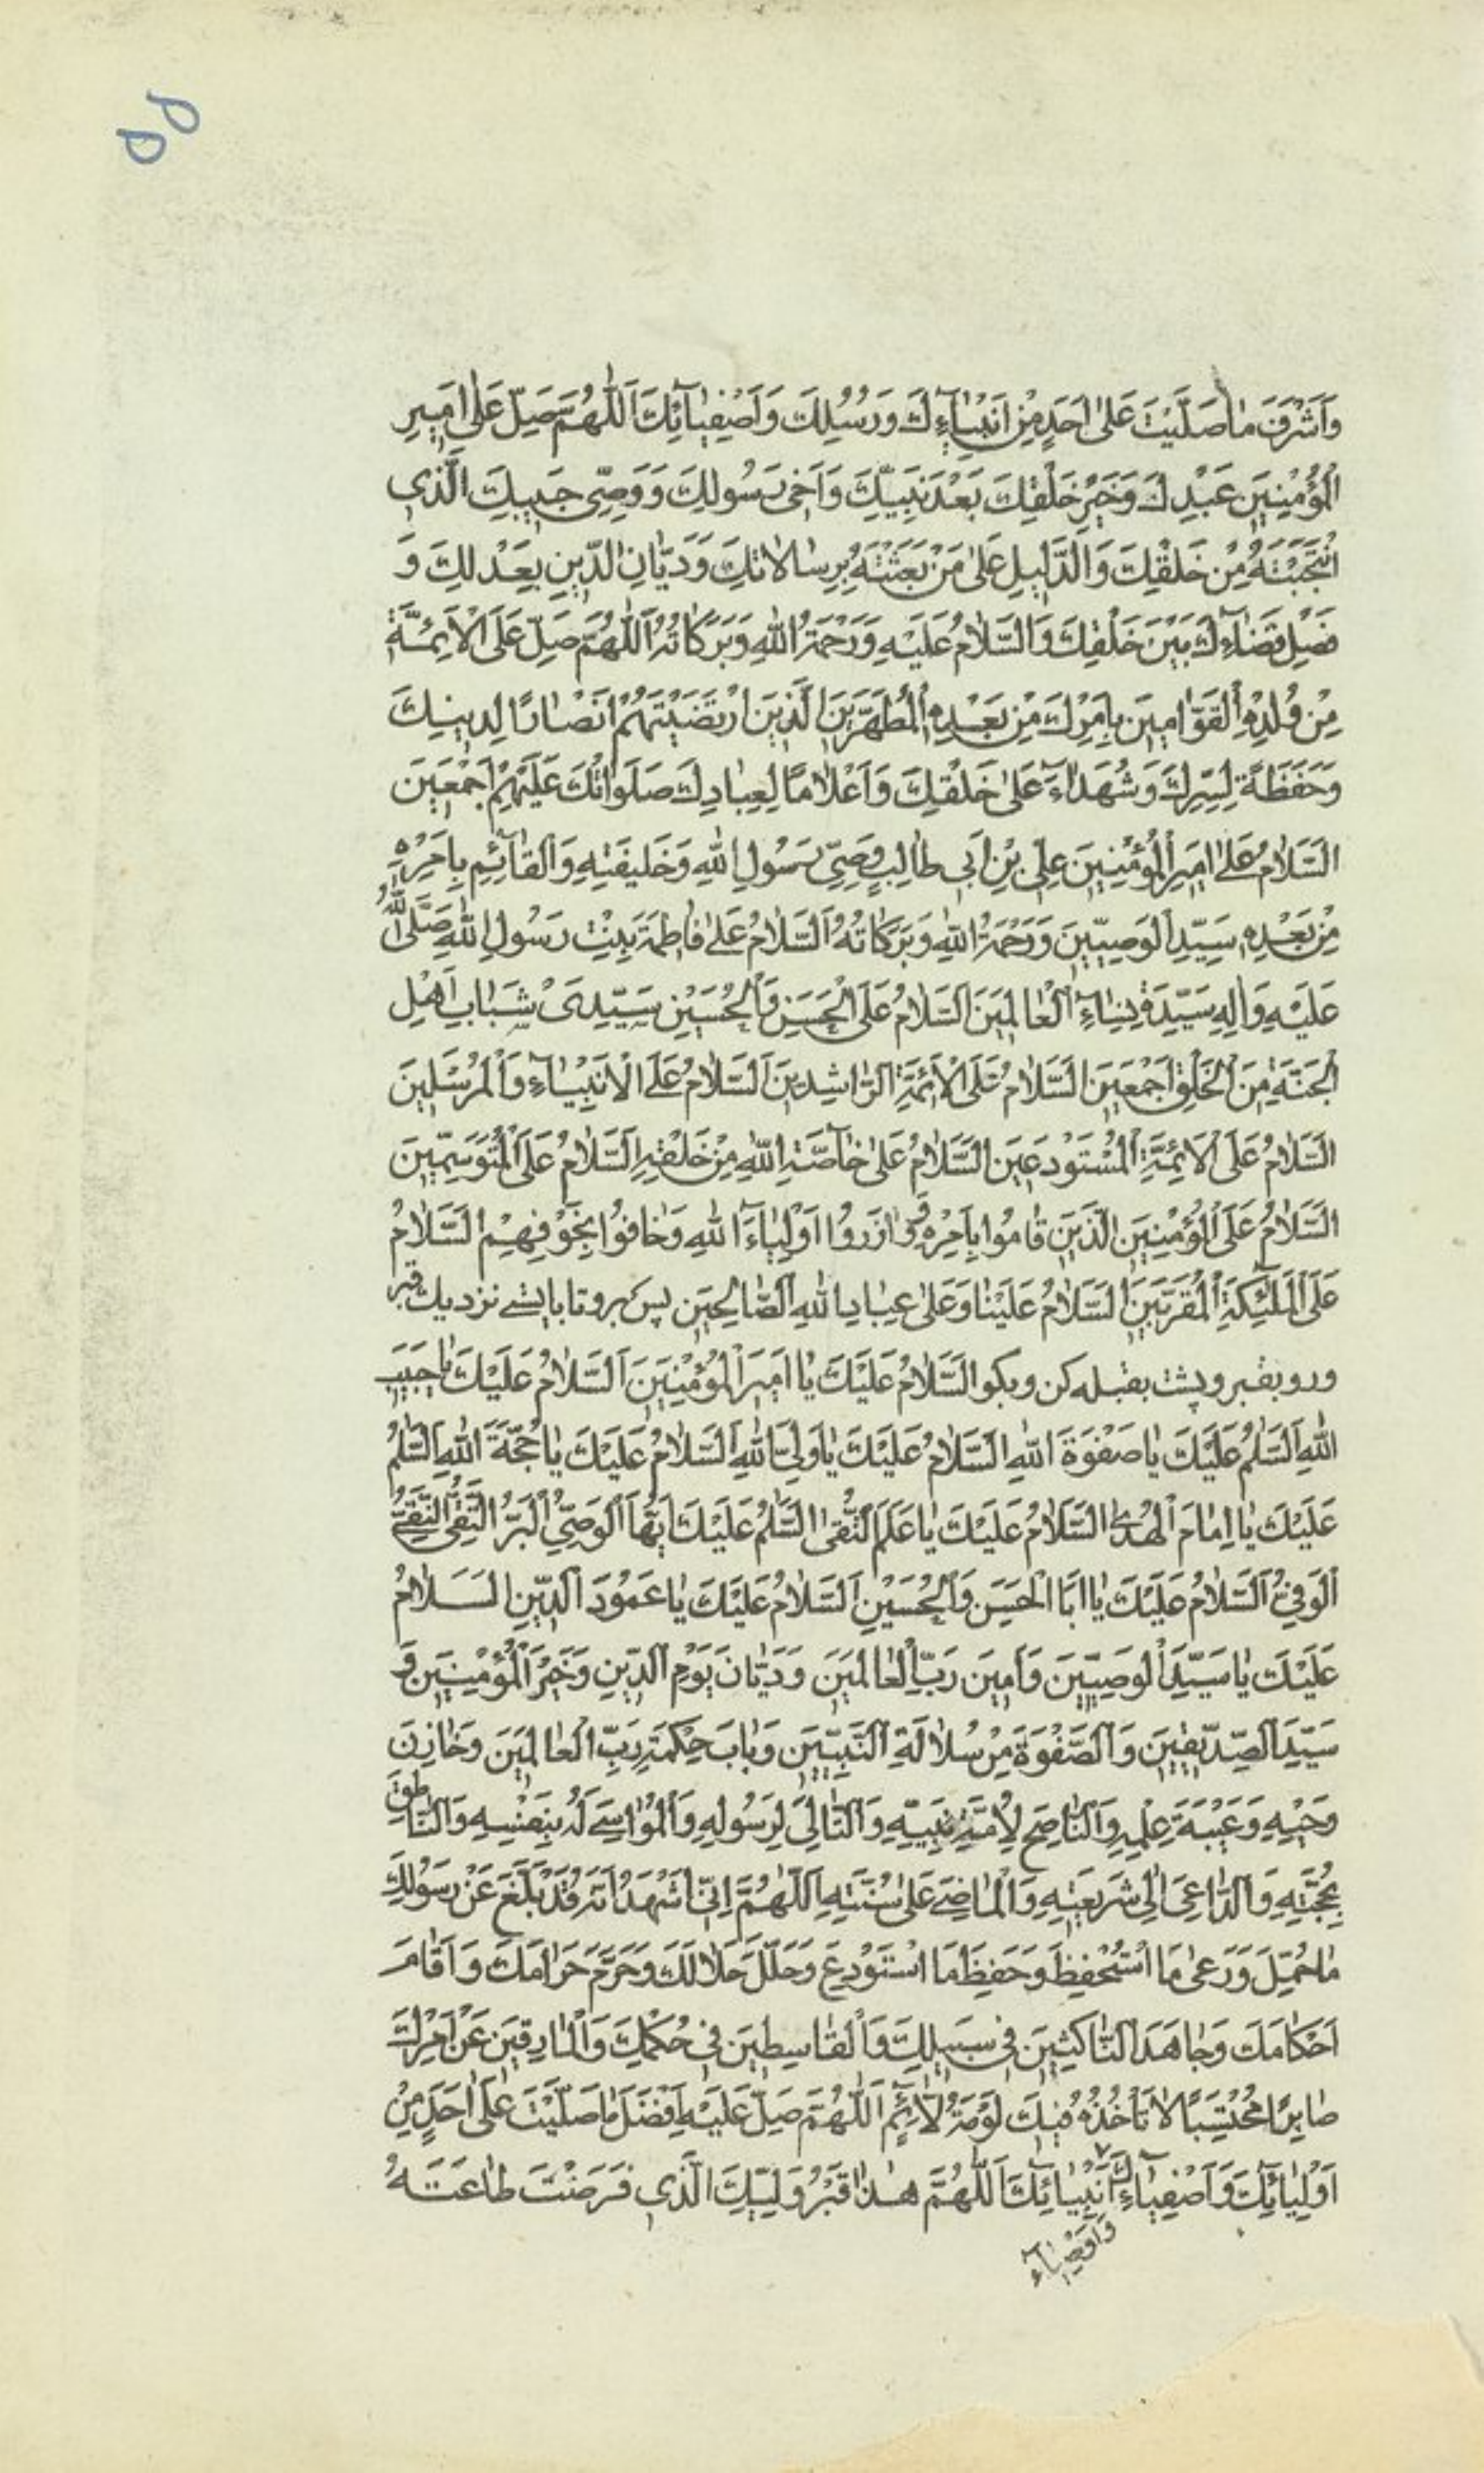 ۵۵
وَاَشْرَفَ مٰا صَلَّيْتَ عَلىٰ اَحَدٍ مِنْ اَنْبِيٰآءِكَ وَرُسُلِكَ وَاَصْفِيٰآئِكَ اَللّٰهُمَّ صَلِّ عَلىٰ اَمِيرِ
الْمُؤْمِنِينَ عَبْدِكَ وَخَيْرِ خَلْقِكَ بَعْدَ نَبِيِّكَ وَاَخِى رَسُولِكَ وَوَصِىِّ حَبِيبِكَ الَّذِى
انْتَجَبْتَهُ مِنْ خَلْقِكَ وَالدَّلِيلِ عَلىٰ مَنْ بَعَثْتَهُ بِرِسٰالاٰتِكَ وَدَيّٰانِ الدِّينِ بِعَدْلِكَ وَ
فَصْلِ قَضٰآءِكَ بَيْنَ خَلْقِكَ وَالسَّلاٰمُ عَلَيْهِ وَرَحْمَةُ اللّٰهِ وَبَرَكٰاتُهُ اَللّٰهُمَّ صَلِّ عَلَى الْاَئِمَّةِ
مِنْ وُلْدِهِ الْقَوّٰامِينَ بِاَمْرِكَ مِنْ بَعْدِهِ الْمُطَهَّرِينَ الَّذِينَ ارْتَضَيْتَهُمْ اَنْصٰارًا لِدِينِكَ
وَحَفَظَةً لِسِرِّكَ وَشُهَدٰآءَ عَلىٰ خَلْقِكَ وَاَعْلاٰمًا لِعِبٰادِكَ صَلَوٰاتُكَ عَلَيْهِمْ اَجْمَعِينَ
السَّلاٰمُ عَلىٰ اَمِيرِ الْمُؤْمِنِينَ عَلِىِّ بْنِ اَبِى طٰالِبٍ وَصِىِّ رَسُولِ اللّٰهِ وَخَلِيفَتِهِ وَالْقٰآئِمِ بِاَمْرِهِ
مِنْ بَعْدِهِ سَيِّدِ الْوَصِيِّينَ وَرَحْمَةُ اللّٰهِ وَبَرَكٰاتُهُ اَلسَّلاٰمُ عَلىٰ فٰاطِمَةَ بِنْتِ رَسُولِ اللّٰهِ صَلَّى اللّٰهُ
عَلَيْهِ وَاٰلِهِ سَيِّدَةِ نِسٰآءِ الْعٰالَمِينَ اَلسَّلاٰمُ عَلَى الْحَسَنِ وَالْحُسَيْنِ سَيِّدَىْ شَبٰابِ اَهْلِ
الْجَنَّةِ مِنَ الْخَلْقِ اَجْمَعِينَ السَّلاٰمُ عَلَى الْاَئِمَّةِ الرّٰاشِدِينَ اَلسَّلاٰمُ عَلَى الْاَنْبِيٰآءِ وَالْمُرْسَلِينَ
السَّلاٰمُ عَلَى الْاَئِمَّةِ الْمُسْتَوْدَعِينَ السَّلاٰمُ عَلىٰ خٰآصَّةِ اللّٰهِ مِنْ خَلْقِهِ اَلسَّلاٰمُ عَلَى الْمُتَوَسِّمِينَ
السَّلاٰمُ عَلَى الْمُؤْمِنِينَ الَّذِينَ قٰامُوا بِاَمْرِهِ وَوٰازَرُوا اَوْلِيٰآءَ اللّٰهِ وَخٰافُوا بِخَوْفِهِمْ السَّلاٰمُ
عَلَى الْمَلٰئِكَةِ الْمُقَرَّبِينَ السَّلاٰمُ عَلَيْنٰا وَعَلىٰ عِبٰادِ اللّٰهِ الصّٰالِحِينَ پس برو تا بایستے نزدیك قبر
و رو بقبر و پشت بقبله کن و بکو السَّلاٰمُ عَلَيْكَ يٰا اَمِيرَ الْمُؤْمِنِينَ اَلسَّلاٰمُ عَلَيْكَ يٰا حَبِيبَ
اللّٰهِ اَلسَّلٰمُ عَلَيْكَ يٰا صَفْوَةَ اللّٰهِ السَّلاٰمُ عَلَيْكَ يٰا وَلِىَّ اللّٰهِ اَلسَّلاٰمُ عَلَيْكَ يٰا حُجَّةَ اللّٰهِ اَلسَّلٰمُ
عَلَيْكَ يٰا اِمٰامَ الْهُدىٰ السَّلاٰمُ عَلَيْكَ يٰا عَلَمَ التُّقىٰ السَّلٰمُ عَلَيْكَ اَيُّهَا الْوَصِىُّ الْبَرُّ التَّقِىُّ النَّقِىُّ
الْوَفِىُّ اَلسَّلاٰمُ عَلَيْكَ يٰا اَبَا الْحَسَنِ وَالْحُسَيْنِ اَلسَّلاٰمُ عَلَيْكَ يٰا عَمُودَ الدِّينِ السَّلاٰمُ
عَلَيْكَ يٰا سَيِّدَ الْوَصِيِّينَ وَاَمِينَ رَبِّ الْعٰالَمِينَ وَدَيّٰانَ يَوْمِ الدِّينِ وَخَيْرَ الْمُؤْمِنِينَ وَ
سَيِّدَ الصِّدِّيقِينَ وَالصَّفْوَةَ مِنْ سُلاٰلَةِ النَّبِيِّينَ وَبٰابَ حِكْمَةِ رَبِّ الْعٰالَمِينَ وَخٰازِنَ
وَحْيِهِ وَعَيْبَةَ عِلْمِهِ وَالنّٰاصِحَ لِاُمَّةِ نَبِيِّهِ وَالتّٰالِىَ لِرَسُولِهِ وَالْمُوٰاسِىَ لَهُ بِنَفْسِهِ وَالنّٰاطِقَ
بِحُجَّتِهِ وَالدّٰاعِىَ اِلىٰ شَرِيعَتِهِ وَالْمٰاضِىَ عَلىٰ سُنَّتِهِ اَللّٰهُمَّ اِنِّى اَشْهَدُ اَنَّهُ قَدْ بَلَّغَ عَنْ رَسُولِكَ
مٰا حُمِّلَ وَرَعىٰ مَا اسْتُحْفِظَ وَحَفِظَ مَا اسْتُوْدِعَ وَحَلَّلَ حَلاٰلَكَ وَحَرَّمَ حَرٰامَكَ وَاَقٰامَ
اَحْكٰامَكَ وَجٰاهَدَ النّٰاكِثِينَ فِى سَبِيلِكَ وَالْقٰاسِطِينَ فِى حُكْمِكَ وَالْمٰارِقِينَ عَنْ اَمْرِكَ
صٰابِرًا مُحْتَسِبًا لاٰ تَأْخُذُهُ فِيكَ لَوْمَةُ لاٰئِمٍ اَللّٰهُمَّ صَلِّ عَلَيْهِ اَفْضَلَ مٰا صَلَّيْتَ عَلىٰ اَحَدٍ مِنْ
اَوْلِيٰآئِكَ وَاَصْفِيٰآءِكَ اَنْبِيٰآئِكَ اَللّٰهُمَّ هٰذٰا قَبْرُ وَلِيِّكَ الَّذِى فَرَضْتَ طٰاعَتَهُ
وَاَوْصِيٰآءِ